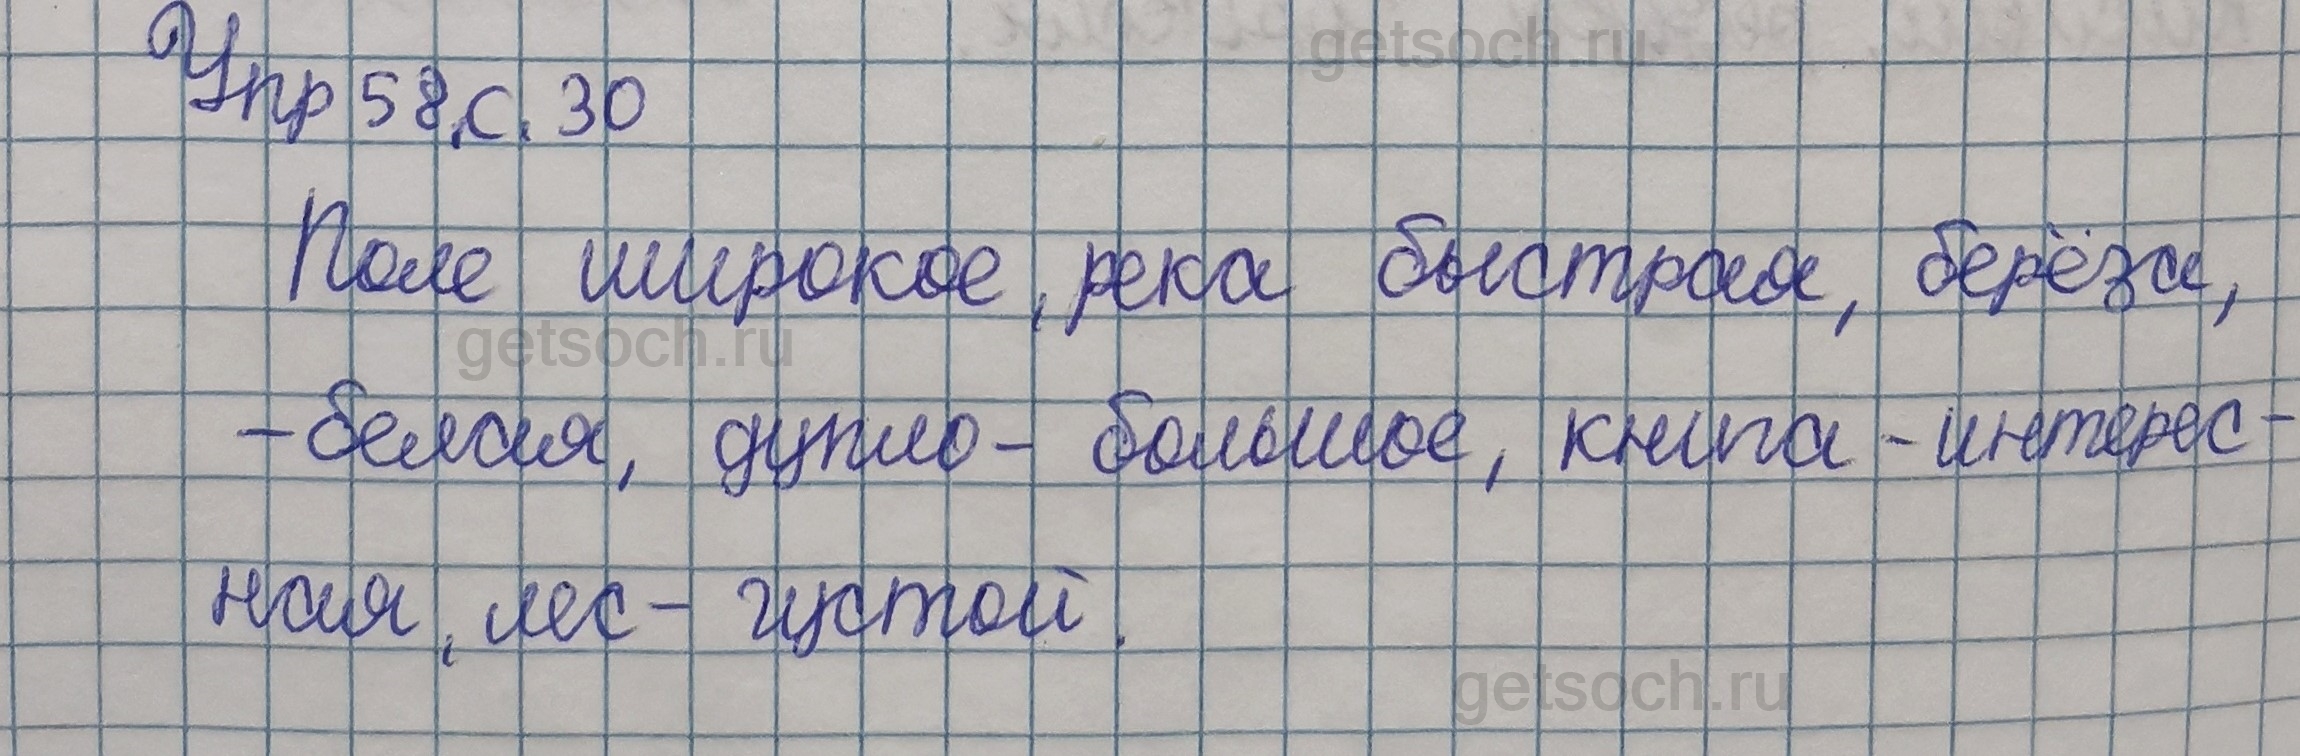 getsoch.ru
Упр 58, с. 30
Поле широкое, река быстрая, берёза,
getsoch.ru
- белая, дупло - большое, книга - интерес-
ная, лес - густой.
getsoch.ru